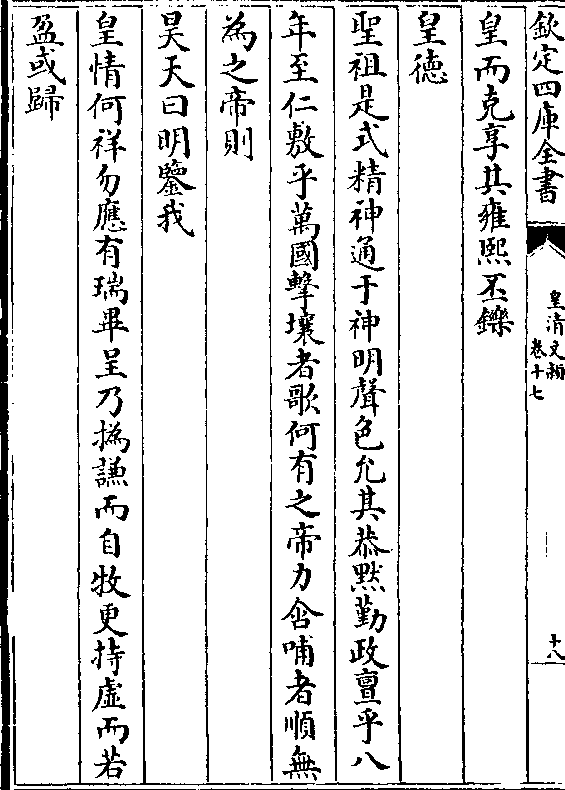 欽定四庫全書
皇清文穎
卷十七
十八
皇而克享其雍熙丕鑠
皇德
聖祖是式精神通于神明聲色允其恭黙勤政亶乎八
年至仁敷乎萬國擊壤者歌何有之帝力含哺者順無
為之帝則
昊天曰明鑒我
皇情何祥勿應有瑞畢呈乃撝謙而自牧更持虛而若
盈或歸